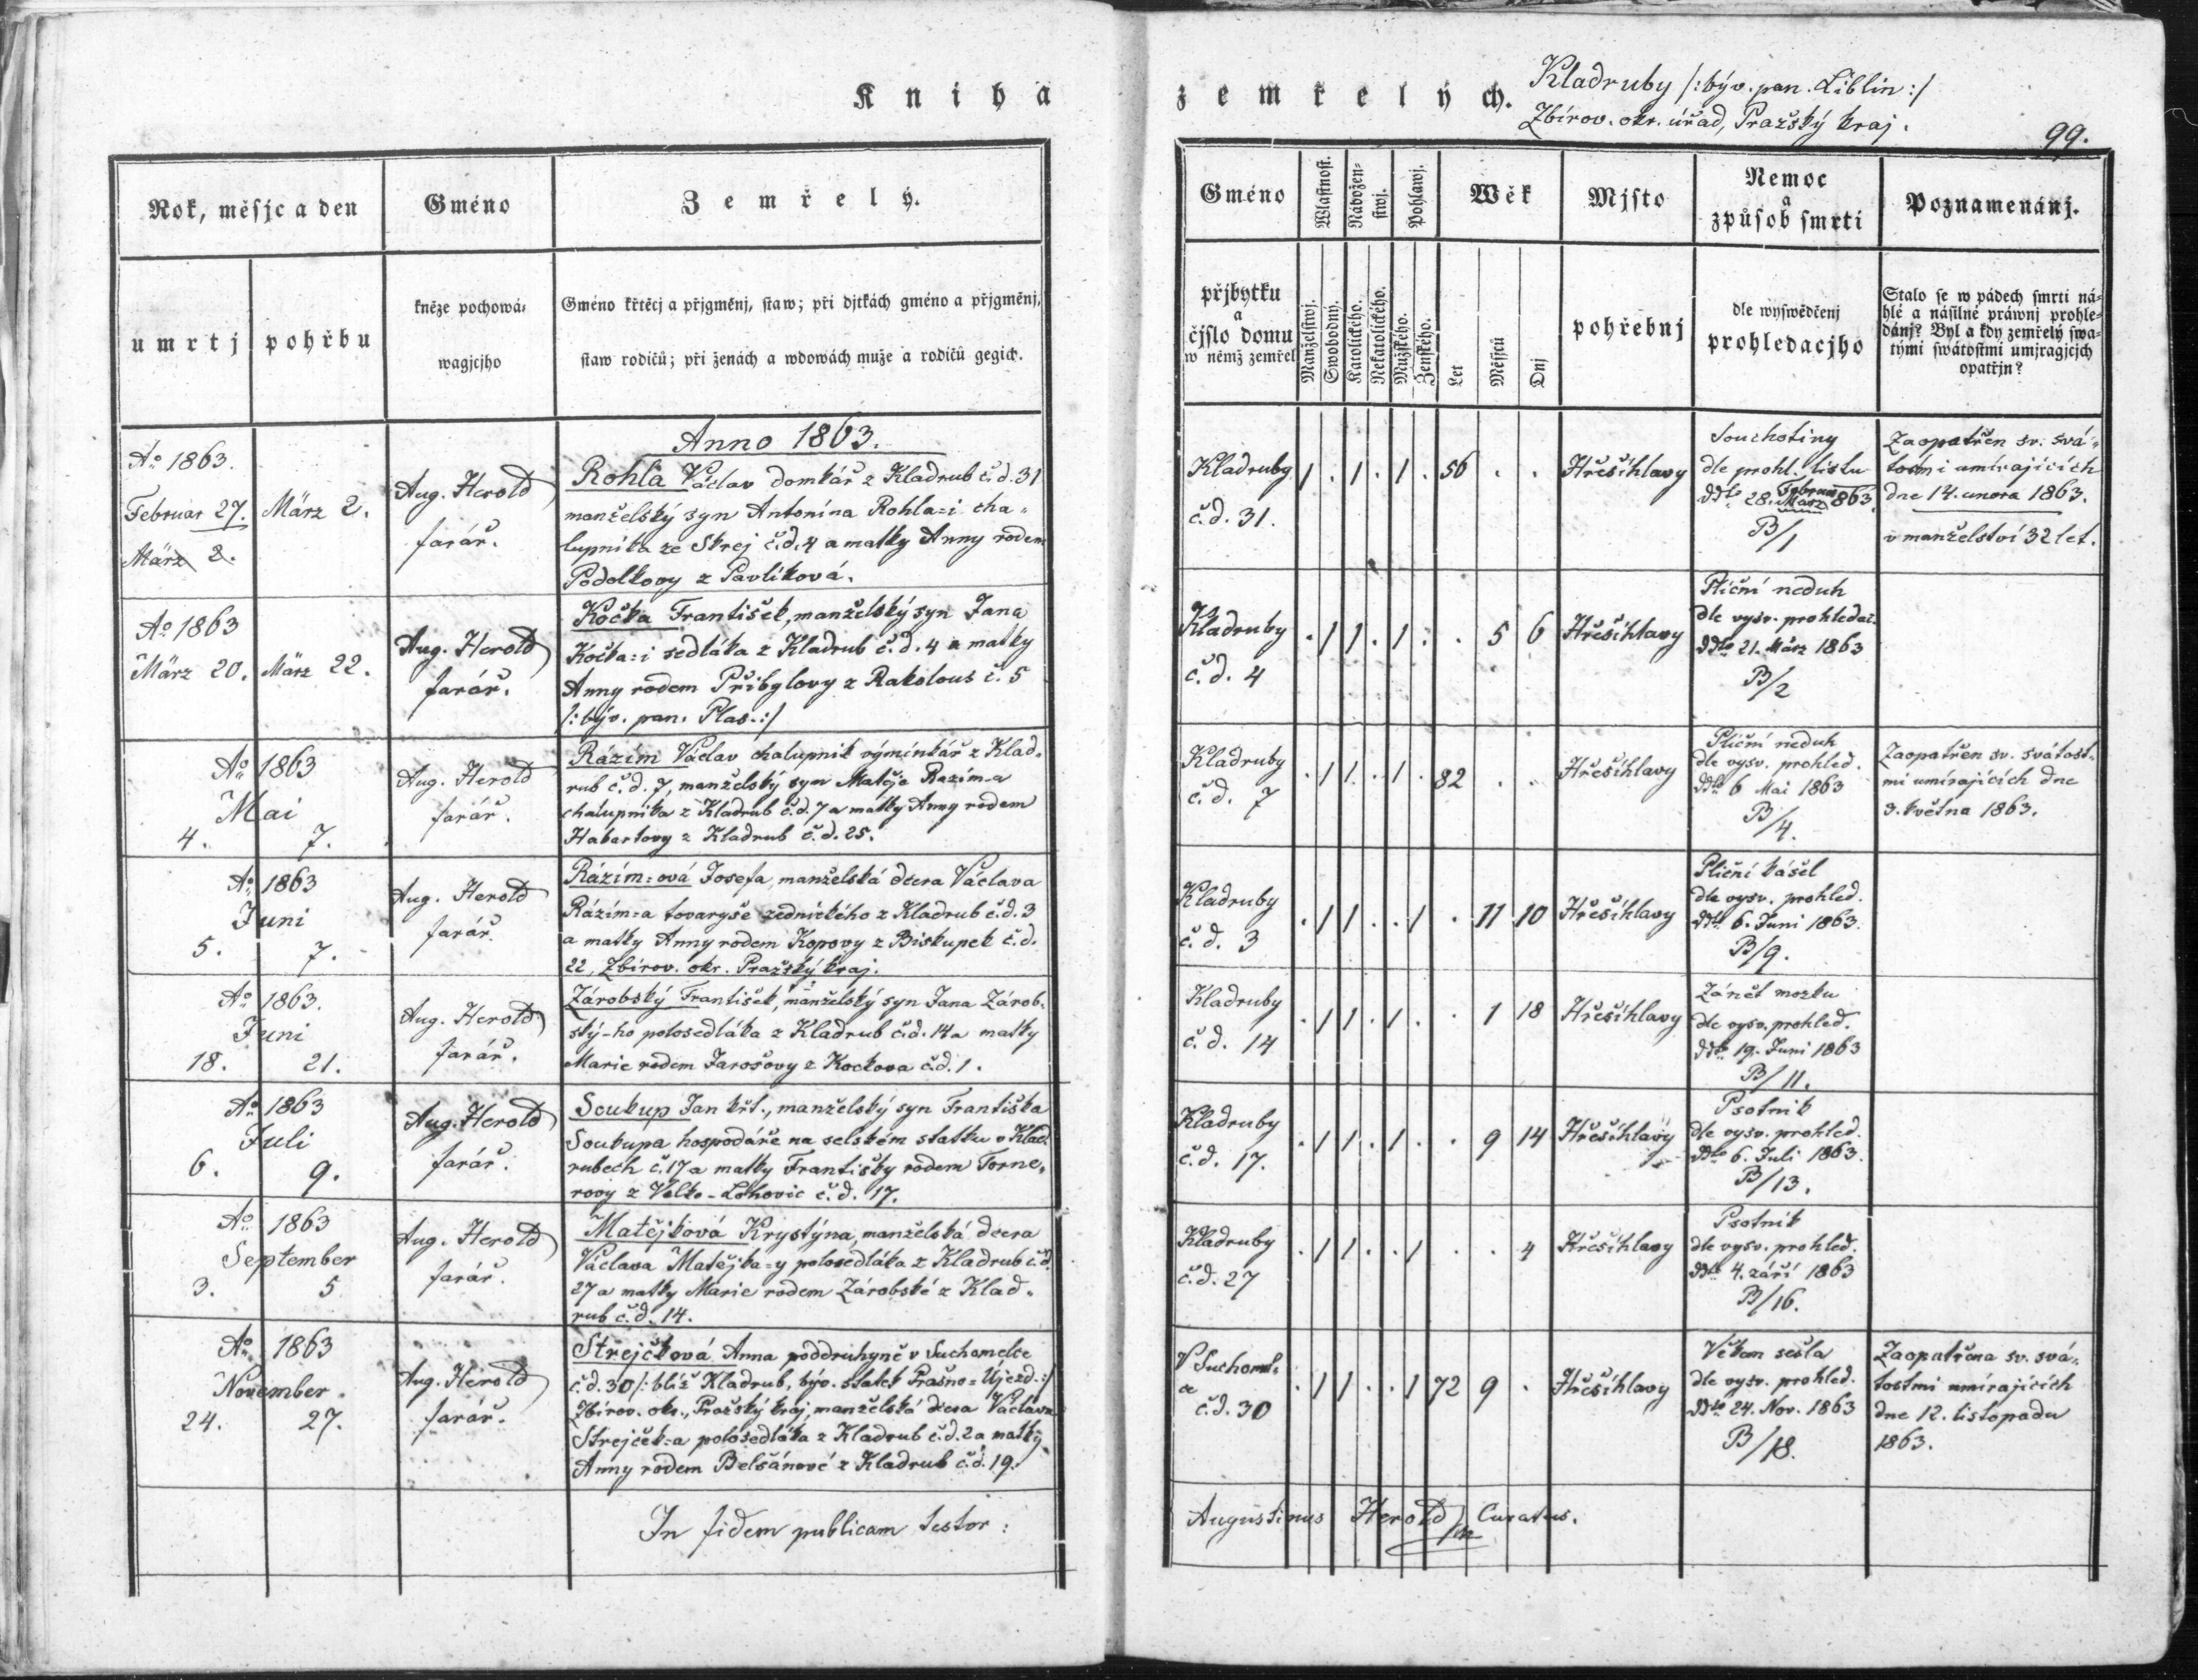 Kniha
zemřelých.
Kladruby /: býv. pan. Liblin :/
Zbirov. okr. úřad, Pražský kraj.
99.
Rok, měsjc a den
umrtj
pohřbu
Gméno
kněze pochowá-
wagjcjho
Zemřelý.
Gméno křtěcj a přjgměnj, staw; při djtkách gméno a přjgměnj,
staw rodičů; při ženách a wdowách muže a rodičů gegich.
Anno 1863.
Aº 1863.
Februar 27.
März 2.
März 2.
Aug. Herold
farář.
Rohla Václav domkář z Kladrub č. d. 31
manželský syn Antonína Rohla=i cha-
lupníka ze Skrej č. d. 4 a matky Anny rodem
Podolkovy z Pavlíková.
Aº 1863
März 20.
März 22.
Aug. Herold
farář.
Kočka František, manželský syn Jana
Kočka=i sedláka z Kladrub č. d. 4 a matky
Anny rodem Přibylovy z Rakolous č. 5
/: býv. pan. Plas. :/
Aº 1863
Mai
4.
7.
Aug. Herold
farář.
Rázím Václav chalupník výminkář z Klad-
rub č. d. 7, manželský syn Matěje Razím-a
chalupníka z Kladrub č. d. 7 a matky Anny rodem
Habartovy z Kladrub č. d. 25.
Aº 1863
Juni
5.
7.
Aug. Herold
farář.
Rázím=ová Josefa, manželská dcera Václava
Rázím=a tovaryše zednického z Kladrub č. d. 3
a matky Anny rodem Kopovy z Biskupek č. d.
22, Zbirov. okr. Pražský kraj.
Aº 1863.
Juni
18.
21.
Aug. Herold
farář.
Zárobský František, manželský syn Jana Zárob-
ský-ho polosedláka z Kladrub č. d. 14 a matky
Marie rodem Jarošovy z Kockova č. d. 1.
Aº 1863
Juli
6.
9.
Aug. Herold
farář.
Soukup Jan křt., manželský syn Františka
Soukupa hospodáře na selském statku v Klad-
rubech č. 17 a matky Františky rodem Torne-
rovy z Velko-Lohovic č. d. 17.
Aº 1863
September
3.
5
Aug. Herold
farář.
Matějková Krystýna, manželská dcera
Václava Matějka=y polosedláka z Kladrub č. d.
27 a matky Marie rodem Zárobské z Klad-
rub č. d. 14.
Aº 1863
November
24.
27.
Aug. Herold
farář.
Strejčková Anna poddruhyně v Suchomelce
č. d. 30 /: blíž Kladrub, býv. statek Prašno=Újezd. :/
Zbirov. okr., Pražský kraj, manželská dcera Václava
Strejček=a polosedláka z Kladrub č. d. 2 a matky
Anny rodem Belšánové z Kladrub č. d. 19.
In fidem publicam testor:
Gméno
přjbytku
a
čjslo domu
w němž zemřel
Wlastnost.
Manželstwj.
Swobodný.
Náboženstwj.
Katolického.
Nekatolického.
Pohlawj.
Mužského.
Ženského.
Wěk
Let
Měsjců
Dnj
Mjsto
pohřebnj
Nemoc
a
způsob smrti
dle wyswědčenj
prohledacjho
Poznamenánj.
Stalo se w pádech smrti ná-
hlé a násilné práwnj prohle-
dánj? Byl a kdy zemřelý swa-
tými swátostmi umjragjcjch
opatřjn?
Kladruby
č. d. 31.
1 . 1 . 1 . 56 . .
Hřešihlavy
Souchotiny
dle prohl. listu
ddto 28. Februar
März 1863.
B/1
Zaopatřen sv. svá-
tostmi umírajících
dne 14. února 1863.
v manželství 32 let.
Kladruby
č. d. 4
. 1 1 . 1 . . 5 6
Hřešihlavy
Plíční neduh
dle vysv. prohledač.
ddto 21. März 1863
B/2
Kladruby
č. d. 7
. 1 1 . 1 . 82 . .
Hřešihlavy
Plíční neduh
dle vysv. prohled.
ddto 6 Mai 1863
B/4.
Zaopatřen sv. svátost-
mi umírajících dne
3. května 1863.
Kladruby
č. d. 3
. 1 1 . . 1 . 11 10
Hřešihlavy
Plíční kášel
dle vysv. prohled.
ddto 6. Juni 1863.
B/9.
Kladruby
č. d. 14
. 1 1 . 1 . . 1 18
Hřešihlavy
Zánět mozku
dle vysv. prohled.
ddto 19. Juni 1863
B/11.
Kladruby
č. d. 17.
. 1 1 . 1 . . 9 14
Hřešihlavy
Psotník
dle vysv. prohled.
ddto 6. Juli 1863.
B/13.
Kladruby
č. d. 27
. 1 1 . . 1 . . 4
Hřešihlavy
Psotník
dle vysv. prohled.
ddto 4. září 1863
B/16.
V Suchomel-
ce
č. d. 30
. 1 1 . . 1 72 9 .
Hřešihlavy
Věkem sešla
dle vysv. prohled.
ddto 24. Nov. 1863
B/18.
Zaopatřena sv. svá-
tostmi umírajících
dne 12. listopadu
1863.
Augustinus Herold Curatus.